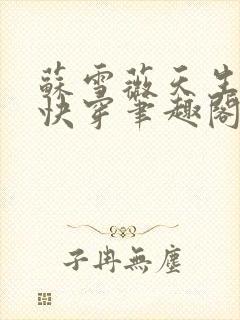 蘇雪薇天生
快穿筆趣閣
子冉無塵